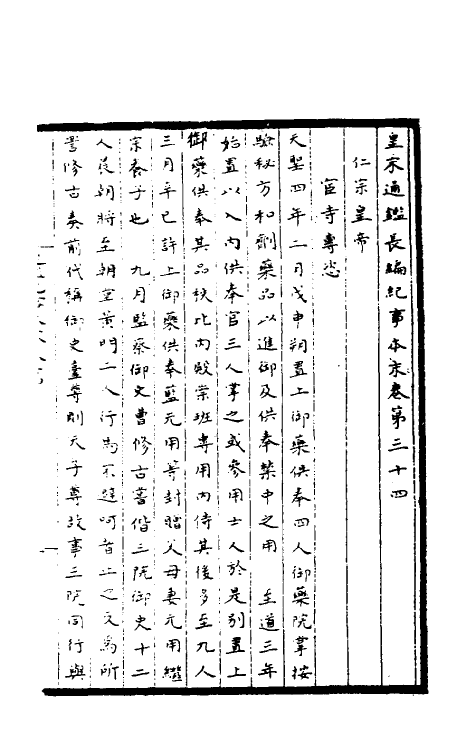 皇宋通鑑長編紀事本末卷第三十四
仁宗皇帝
宦寺專恣
天聖四年二月戊申朔置上御藥供奉四人御藥院掌按
驗秘方和劑藥品以進御及供奉禁中之用 至道三年
始置以入內供奉官三人掌之或參用士人於是別置上
御藥供奉其品秩比內殿崇班專用內侍其後多至九人
三月辛巳詳上御藥供奉藍元用等封贈父母妻元用繼
宗養子也 九月監察御史曹修古嘗偕三院御史十二
人晨朝時至朝堂黃門二人行馬不避呵者止之反為所
詈修古奏前代稱御史臺尊則天子尊故事三院同行與